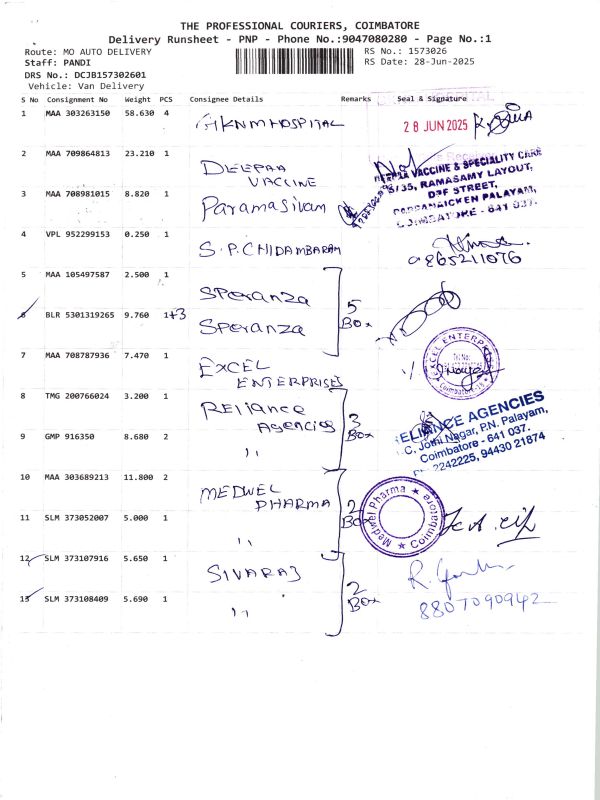 THE PROFESSIONAL COURIERS, COIMBATORE
Delivery Runsheet - PNP - Phone No.:9047080280 - Page No.:1
Route: MO AUTO DELIVERY
RS No.: 1573026
Staff: PANDI
RS Date: 28-Jun-2025
DRS No.: DCJB157302601
Vehicle: Van Delivery
S No Consignment No Weight PCS Consignee Details Remarks Seal & Signature
1 MAA 303263150 58.630 4 GKNM HOSPITAL 28 JUN 2025
2 MAA 709864813 23.210 1 DEEPAA VACCINE
VACCINE & SPECIALITY CARE
5/35, RAMASAMY LAYOUT,
STREET,
PALAYAM,
COIMBATORE - 641 037.
3 MAA 708981015 8.820 1 Paramasivam
4 VPL 952299153 0.250 1 S.P.CHIDAMBARAM
9865211076
5 MAA 105497587 2.500 1 Speranza
5 Box
6 BLR 5301319265 9.760 1+3 Speranza
7 MAA 708787936 7.470 1 EXCEL ENTERPRISES
EXCEL ENTERPRISES
Tel No:
Coimbatore
8 TMG 200766024 3.200 1 Reliance Agencies
3 Box
RELIANCE AGENCIES
Jothi Nagar, P.N. Palayam,
Coimbatore - 641 037.
2242225, 94430 21874
9 GMP 916350 8.680 2 ,,
10 MAA 303689213 11.800 2 MEDWEL PHARMA
2 Box
Medwel Pharma ★ Coimbatore ★
11 SLM 373052007 5.000 1 ,,
12 SLM 373107916 5.650 1 SIVARAJ
2 Box
8807090942
13 SLM 373108409 5.690 1 ,,